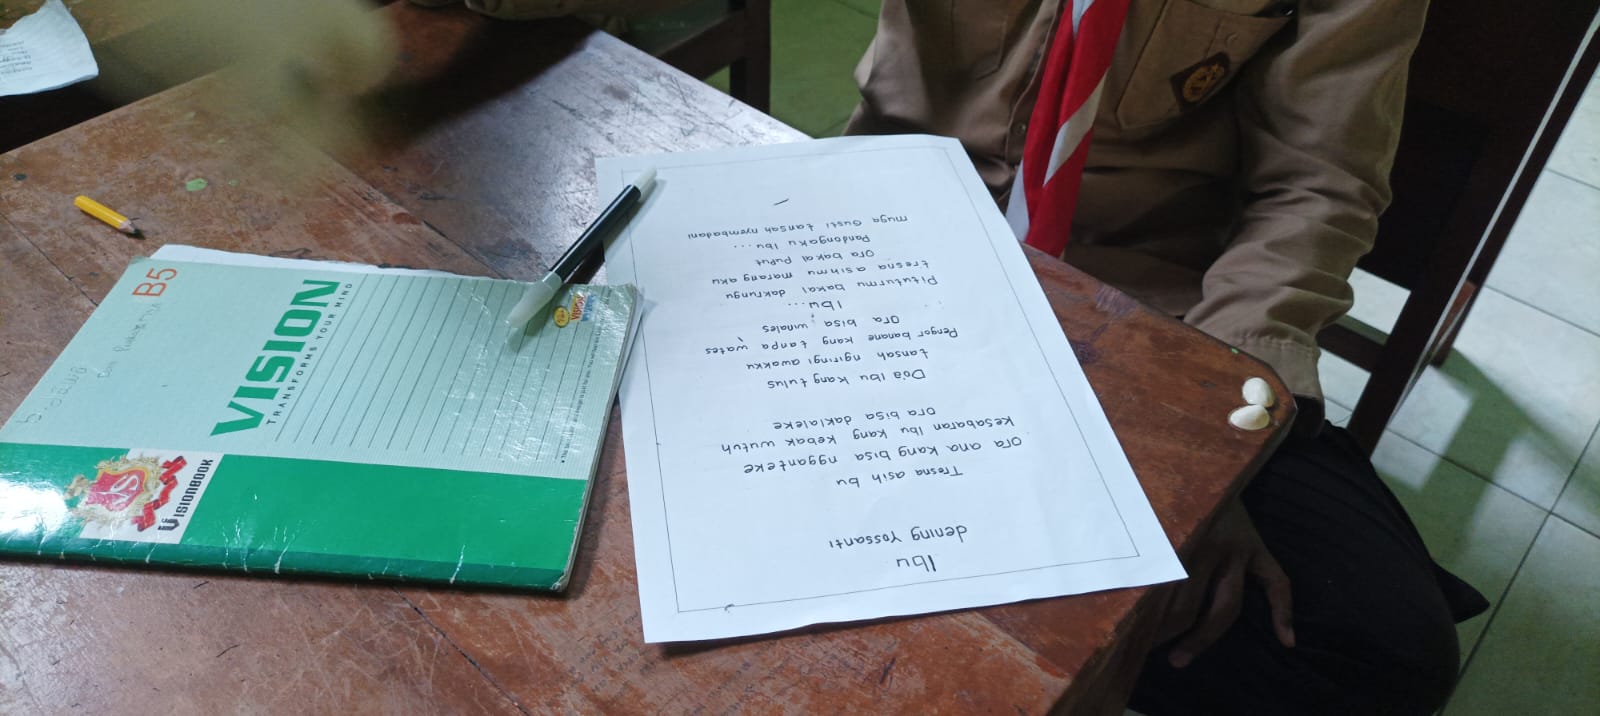 Ibu
dening Yossanti
Tresna asih bu
Ora ana kang bisa ngganteke
Kesabaran Ibu kang kebak wutuh
Ora bisa daklaleke
Doa Ibu kang tulus
tansah ngiringi awakku
Pengor banane kang tanpa wates
Ora bisa winales
Ibu...
Pituturmu bakal dakrungu
tresna asihmu marang aku
Ora bakal puput
Pandongaku Ibu...
muga Gusti tansah nyembadani
B5
VISION
TRANSFORMS YOUR MIND
VISIONBOOK